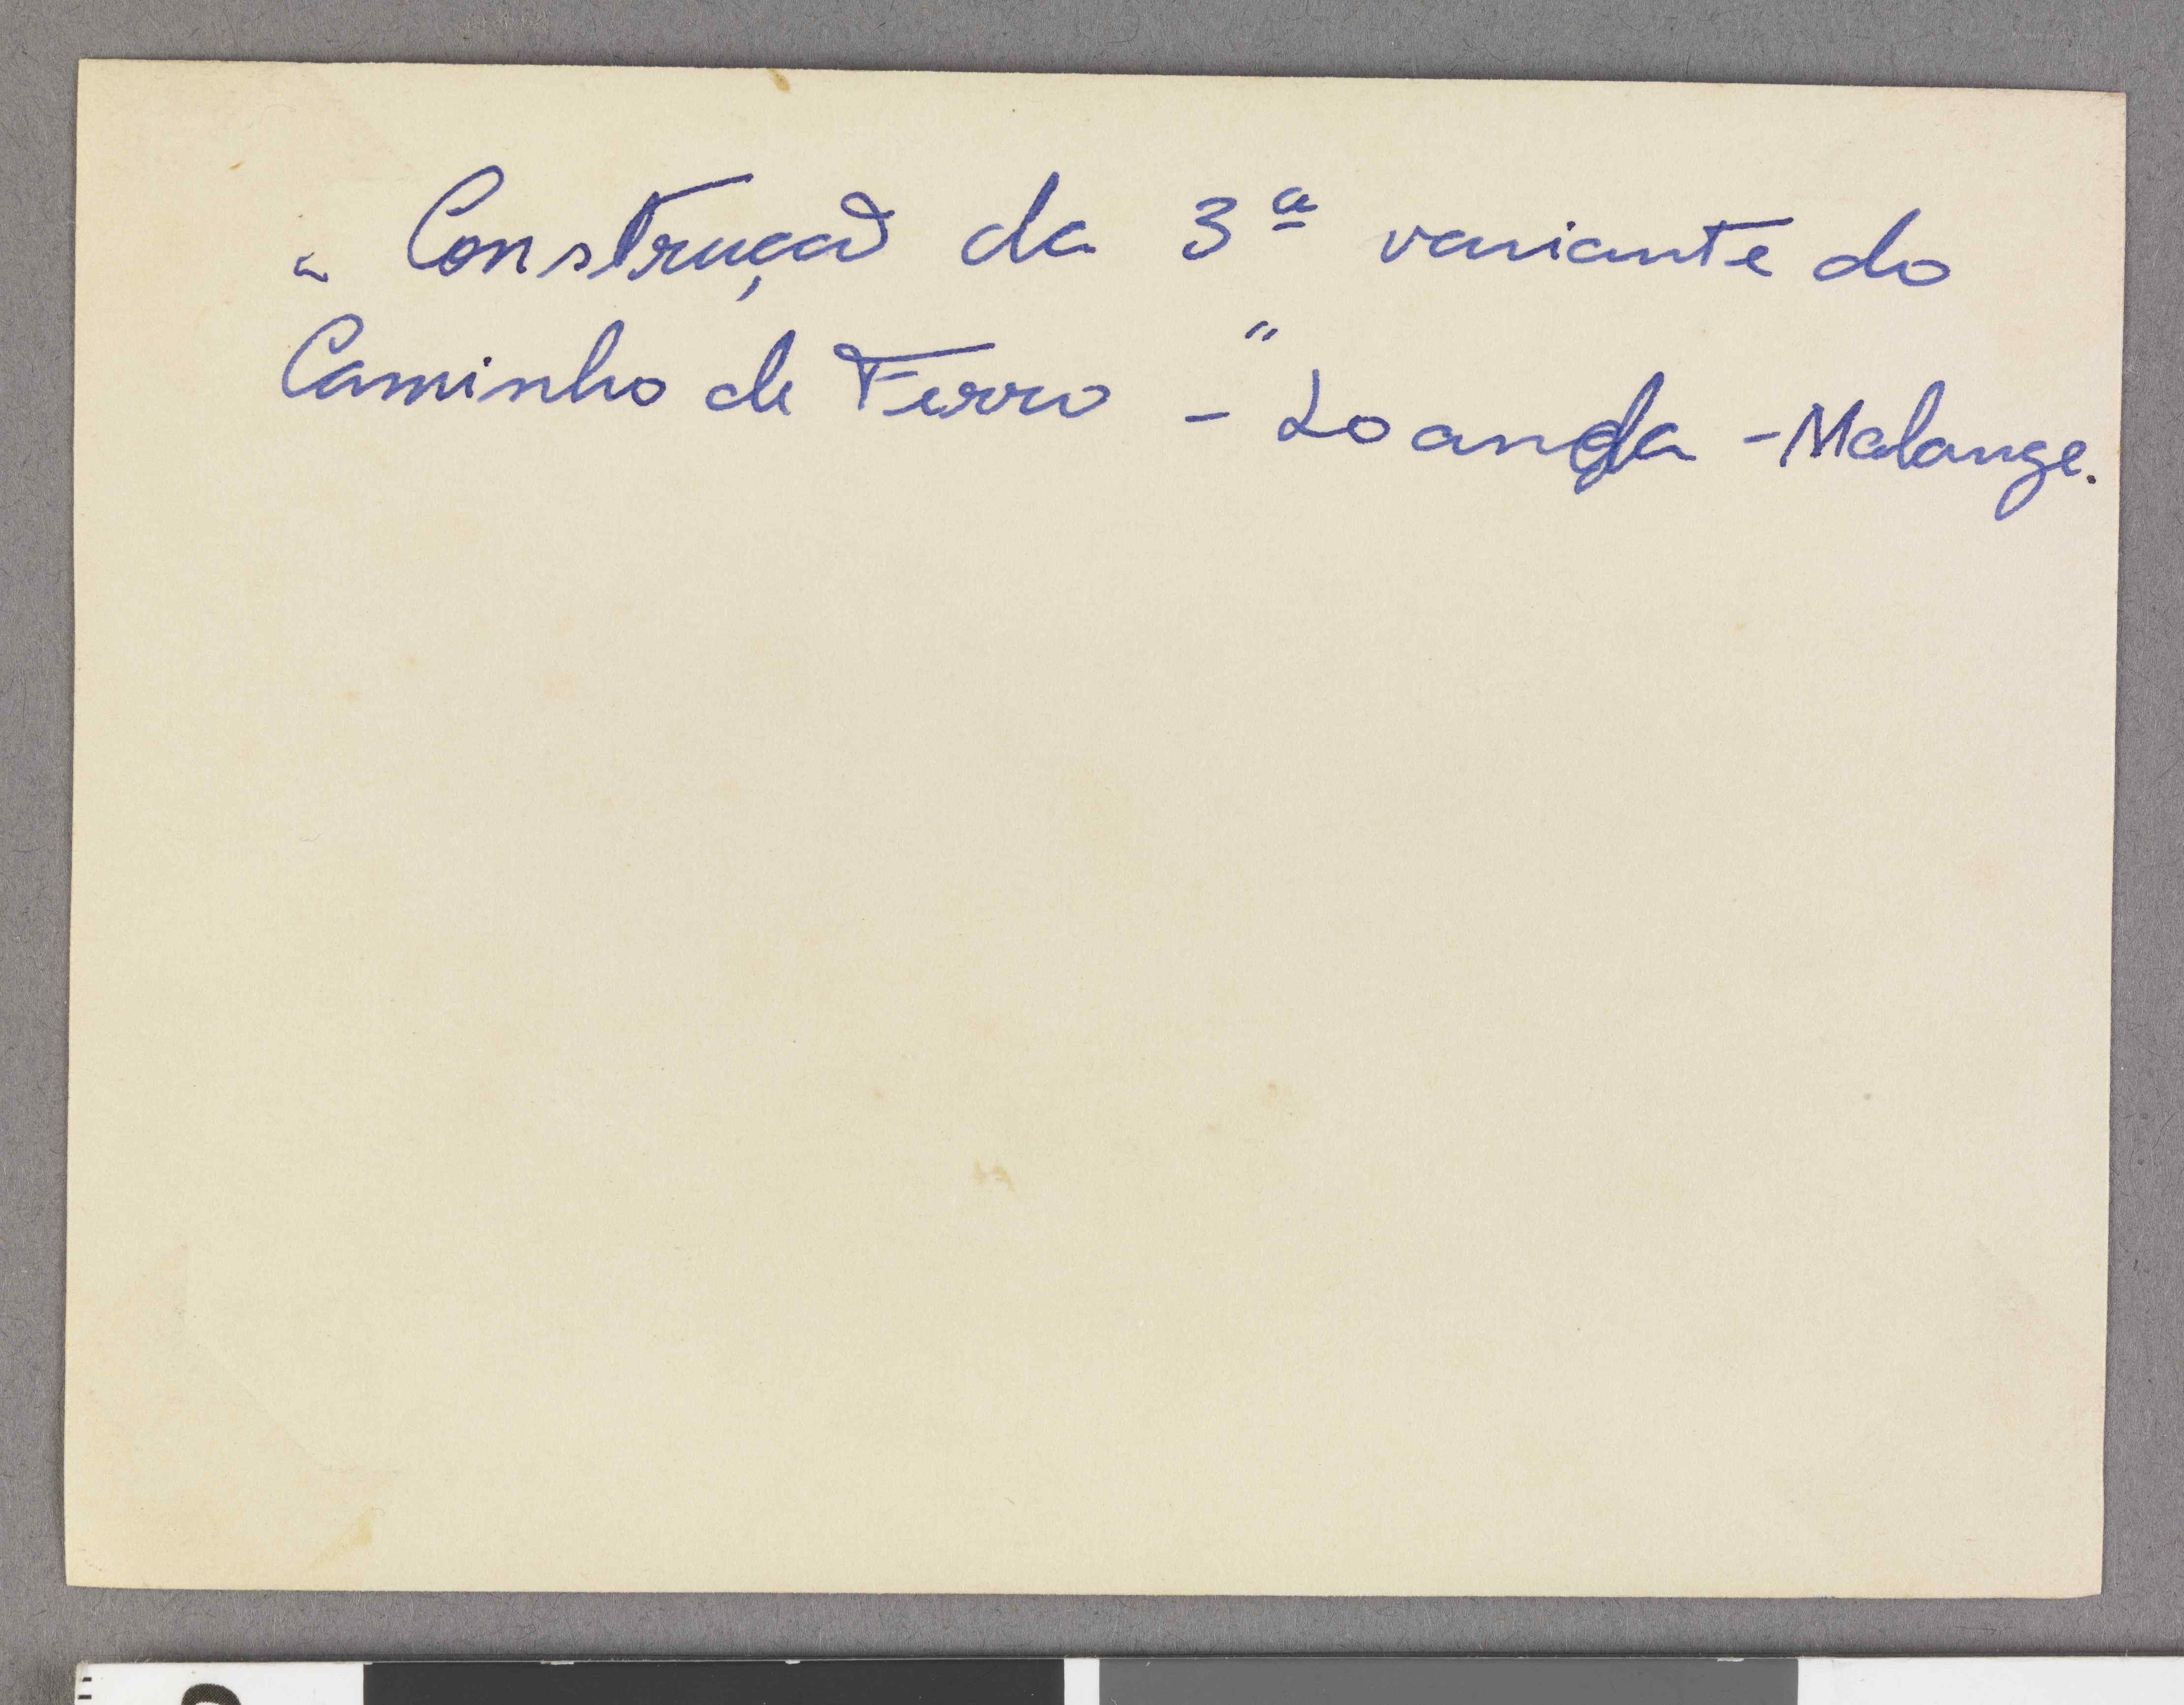 "Construção da 3ª variante do
Caminho de Ferro" - Loanda - Malange.